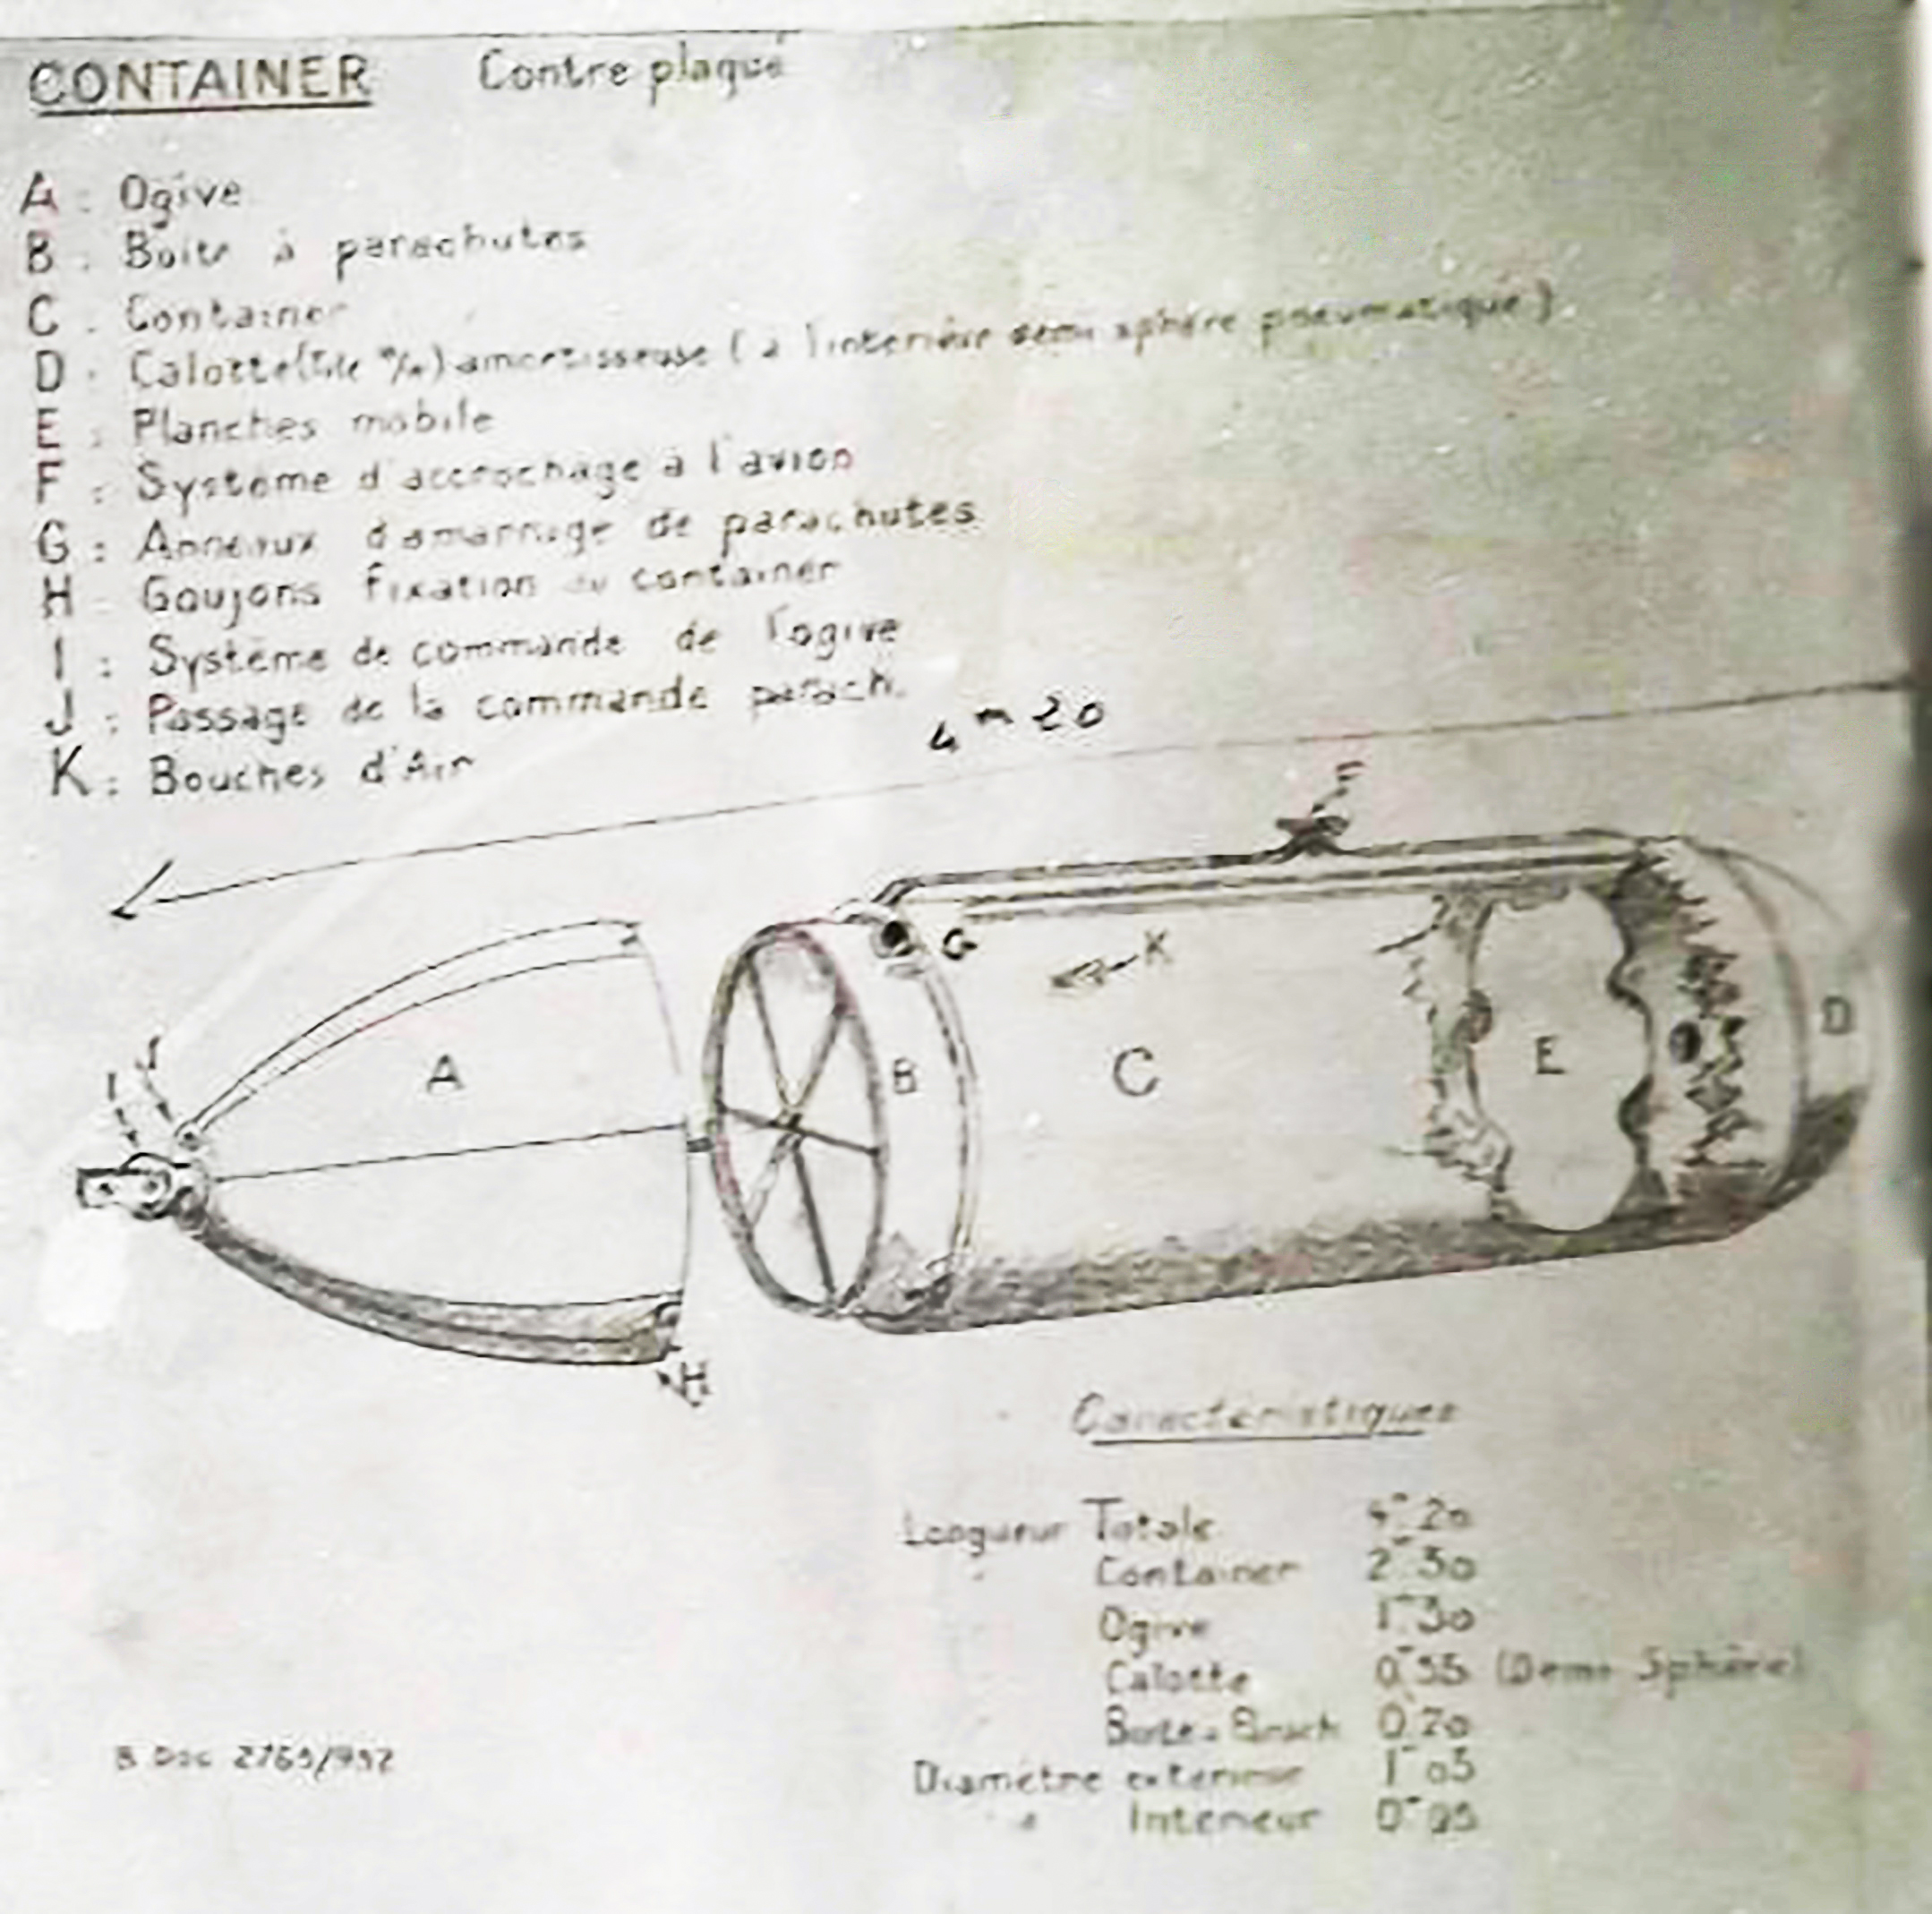 CONTAINER Contre plaqué
A : Ogive
B : Boite à parachutes
C : Container
D : Calotte amortisseuse ( à l'interieur sphère pneumatique )
E : Planches mobile
F : Système d'accrochage à l'avion
G : Anneaux d'amarrage de parachutes
H : Goujons fixation du container
I : Système de commande de l'ogive
J : Passage de la commande parach.
K : Bouches d'Air
4m20
F
G
K
J
I
A
B
C
E
D
H
Caractéristiques
Longueur Totale 4m20
Container
Ogive 1m30
Calotte (Demi Sphère)
Boite Parach 0,20
Diamétre exterieur 1m05
" Interieur
B Doc